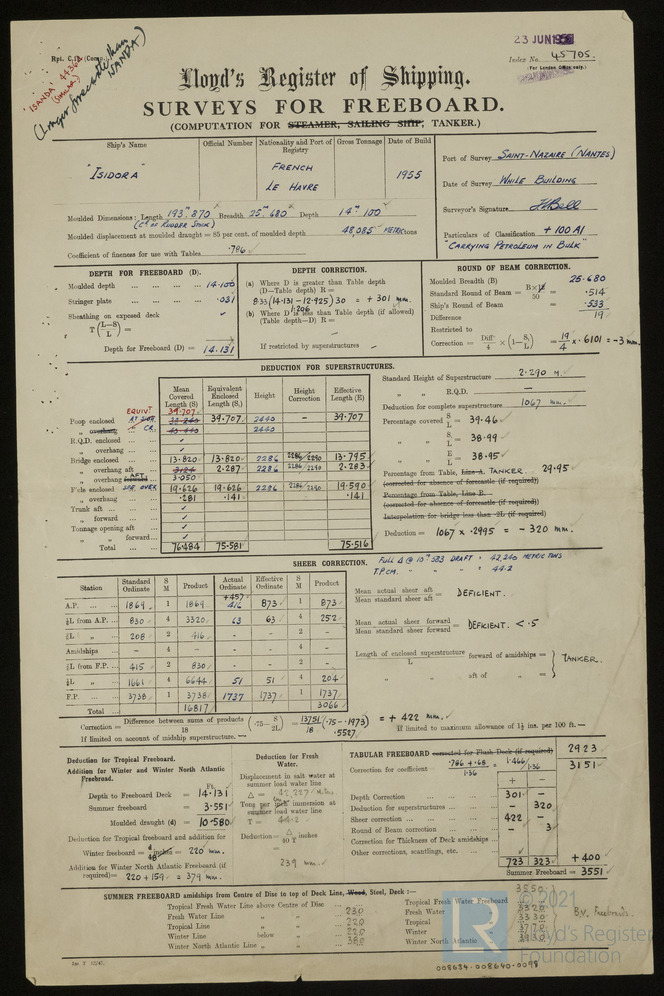 Rpt. C.11. (Com
ISANDA' 44364
(SIMILAR)
(Longer forecastle than ISANDA)
23 JUN 1956
Index No. 45705.
(For London Office only.)
Lloyd's Register of Shipping.
SURVEYS FOR FREEBOARD.
(COMPUTATION FOR STEAMER, SAILING SHIP, TANKER.)
Ship's Name Official Number Nationality and Port of Registry Gross Tonnage Date of Build
"ISIDORA" FRENCH LE HAVRE 1955
Port of Survey SAINT-NAZAIRE (NANTES)
Date of Survey WHILE BUILDING
Surveyor's Signature
Particulars of Classification + 100 A1
"CARRYING PETROLEUM IN BULK"
Moulded Dimensions: Length 193m.870 Breadth 25m.680 Depth 14m.100
(CL OF RUDDER STOCK)
Moulded displacement at moulded draught = 85 per cent. of moulded depth 48,085 METRIC tons
Coefficient of fineness for use with Tables .786
DEPTH FOR FREEBOARD (D).
Moulded depth ... ... ... 14.100
Stringer plate ... ... ... .031
Sheathing on exposed deck
T (L-S / L) =
Depth for Freeboard (D) = 14.131
DEPTH CORRECTION.
(a) Where D is greater than Table depth
(D-Table depth) R =
8.33 (14.131 - 12.925) 30 = + 301 mm.
1.206
(b) Where D is less than Table depth (if allowed)
(Table depth-D) R =
If restricted by superstructures
ROUND OF BEAM CORRECTION.
Moulded Breadth (B) 25.680
Standard Round of Beam = B×12 / 50 = .514
Ship's Round of Beam = .533
Difference 19
Restricted to
Correction = Diff / 4 × (1- S1 / L) = 19 / 4 × .6101 = -3 mm.
DEDUCTION FOR SUPERSTRUCTURES.
Mean Covered Length (S) Equivalent Enclosed Length (S1) Height Height Correction Effective Length (E)
EQUIV. 39.707
Poop enclosed AT SIDE 39.707 2440 - 39.707
" overhang & CR. 2440
R.Q.D. enclosed ...
" overhang ...
Bridge enclosed ... 13.820 13.820 2286 2286/2290 13.795
" overhang aft 3.124 2.287 2286 2286/2290 2.283
" overhang forward AFT 3.050
F'cle enclosed 19.626 19.626 2286 2286/2290 19.590
" overhang .281 .141 .141
Trunk aft ... ...
" forward ...
Tonnage opening aft
" " forward
Total ... ... 76.484 75.581 75.516
Standard Height of Superstructure 2.290 M.
" " R.Q.D. —
Deduction for complete superstructure 1067 mm.
Percentage covered S / L = 39.46
" " S1 / L = 38.99
" " E / L = 38.95
Percentage from Table, Line A. TANKER. 29.95
(corrected for absence of forecastle (if required))
Percentage from Table, Line B.
(corrected for absence of forecastle (if required))
Interpolation for bridge less than ·2L (if required)
Deduction = 1067 × .2995 = - 320 mm.
SHEER CORRECTION.
FULL Δ @ 10m.583 DRAFT = 42,240 METRIC TONS
T.P.CM. " " " = 44.2
Station Standard Ordinate S M Product Actual Ordinate Effective Ordinate S M Product
A.P. ... ... 1869 1 1869 +457 416 873 1 873
⅙L from A.P. ... 830 4 3320 63 63 4 252
⅓L " ... 208 2 416 - - 2 -
Amidships ... - 4 - - 4 -
⅓L from F.P. ... 415 2 830 - - 2 -
⅙L " ... 1661 4 6644 51 51 4 204
F.P. ... ... 3738 1 3738 1737 1737 1 1737
Total ... 16817 3066
Mean actual sheer aft / Mean standard sheer aft = DEFICIENT.
Mean actual sheer forward / Mean standard sheer forward = DEFICIENT. < .5
Length of enclosed superstructure forward of amidships / L = TANKER.
" " aft of " =
Correction = Difference between sums of products / 18 (·75- S / 2L) = 13751 / 18 (.75 - .1973) = + 422 mm.
.5527
If limited on account of midship superstructure. —
If limited to maximum allowance of 1½ ins. per 100 ft. —
Deduction for Tropical Freeboard.
Addition for Winter and Winter North Atlantic Freeboard.
Ft.
Depth to Freeboard Deck = 14.131
Summer freeboard = 3.551
Moulded draught (d) = 10.580
Deduction for Tropical freeboard and addition for
Winter freeboard = d inches / 48 = 220 mm.
Addition for Winter North Atlantic Freeboard (if required) = 220 + 159 = 379 mm.
Deduction for Fresh Water.
Displacement in salt water at summer load water line
Δ = 42,227
Tons per inch immersion at summer load water line
T = 44.2
Deduction = Δ / 40 T inches
239 mm.
TABULAR FREEBOARD corrected for Flush Deck (if required) 2923
Correction for coefficient .786 + .68 / 1.36 = 1.466 / 1.36 3151
+ -
Depth Correction ... ... 301 -
Deduction for superstructures ... - 320
Sheer correction ... ... 422 -
Round of Beam correction ... - 3
Correction for Thickness of Deck amidships
Other corrections, scantlings, etc. ...
723 323 + 400
Summer Freeboard = 3551
SUMMER FREEBOARD amidships from Centre of Disc to top of Deck Line, Wood, Steel, Deck :— 3550
Tropical Fresh Water Line above Centre of Disc ...
Fresh Water Line " " ... 230
Tropical Line " " ... 220
Winter Line below " ... 220
Winter North Atlantic Line " " ... 380
Tropical Fresh Water Freeboard
Fresh Water " 3320
Tropical " 3330
Winter " 3770
Winter North Atlantic " 3930
B.V. Freeboards.
© 2021
Lloyd's Register
Foundation
LR
008634-008640-0098